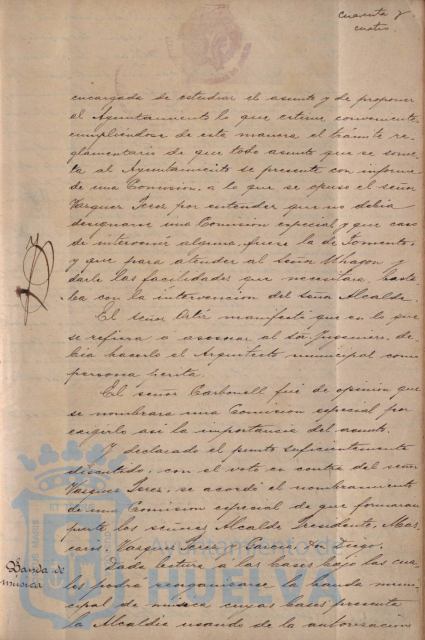 cuarenta y
cuatro.
encargada de estudiar el asunto y de proponer
al Ayuntamiento lo que estime conveniente,
cumpliéndose de esta manera el trámite re-
glamentario de que todo asunto que se some-
ta al Ayuntamiento se presente con informe
de una Comision, a lo que se opuso el señor
Vazquez Perez por entender que no debia
designarse una Comision especial y que caso
de intervenir alguna fuese la de Fomento,
y que para atender al Señor Whason y
darle las facilidades que necesitara, basta-
ba con la intervencion del señor Alcalde.
El señor Ortiz manifestó que en lo que
se refiera a asesorar al Sor. Ingeniero, de-
bia hacerlo el Arquitecto municipal como
persona perita.
El señor Carbonell fué de opinion que
se nombrara una Comision especial por
exigirlo asi la importancia del asunto.
Y declarado el punto suficientemente
discutido, con el voto en contra del señor
Vazquez Perez, se acordó el nombramiento
de una Comision especial de que formaran
parte los señores Alcalde Presidente,
Vazquez Perez, Garcia
Banda de
música
Dada lectura a las bases bajo las cua-
les podrá reorganizarse la banda muni-
cipal de música cuyas bases presenta
la Alcaldia usando de la autorizacion
Ayuntamiento de
HUELVA